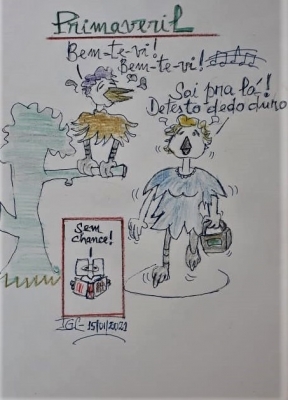 Primaveril
Bem-te-vi!
Bem-te-vi!
Sai pra lá!
Detesto dedo duro
Sem
chance!
IGC-15/01/2021